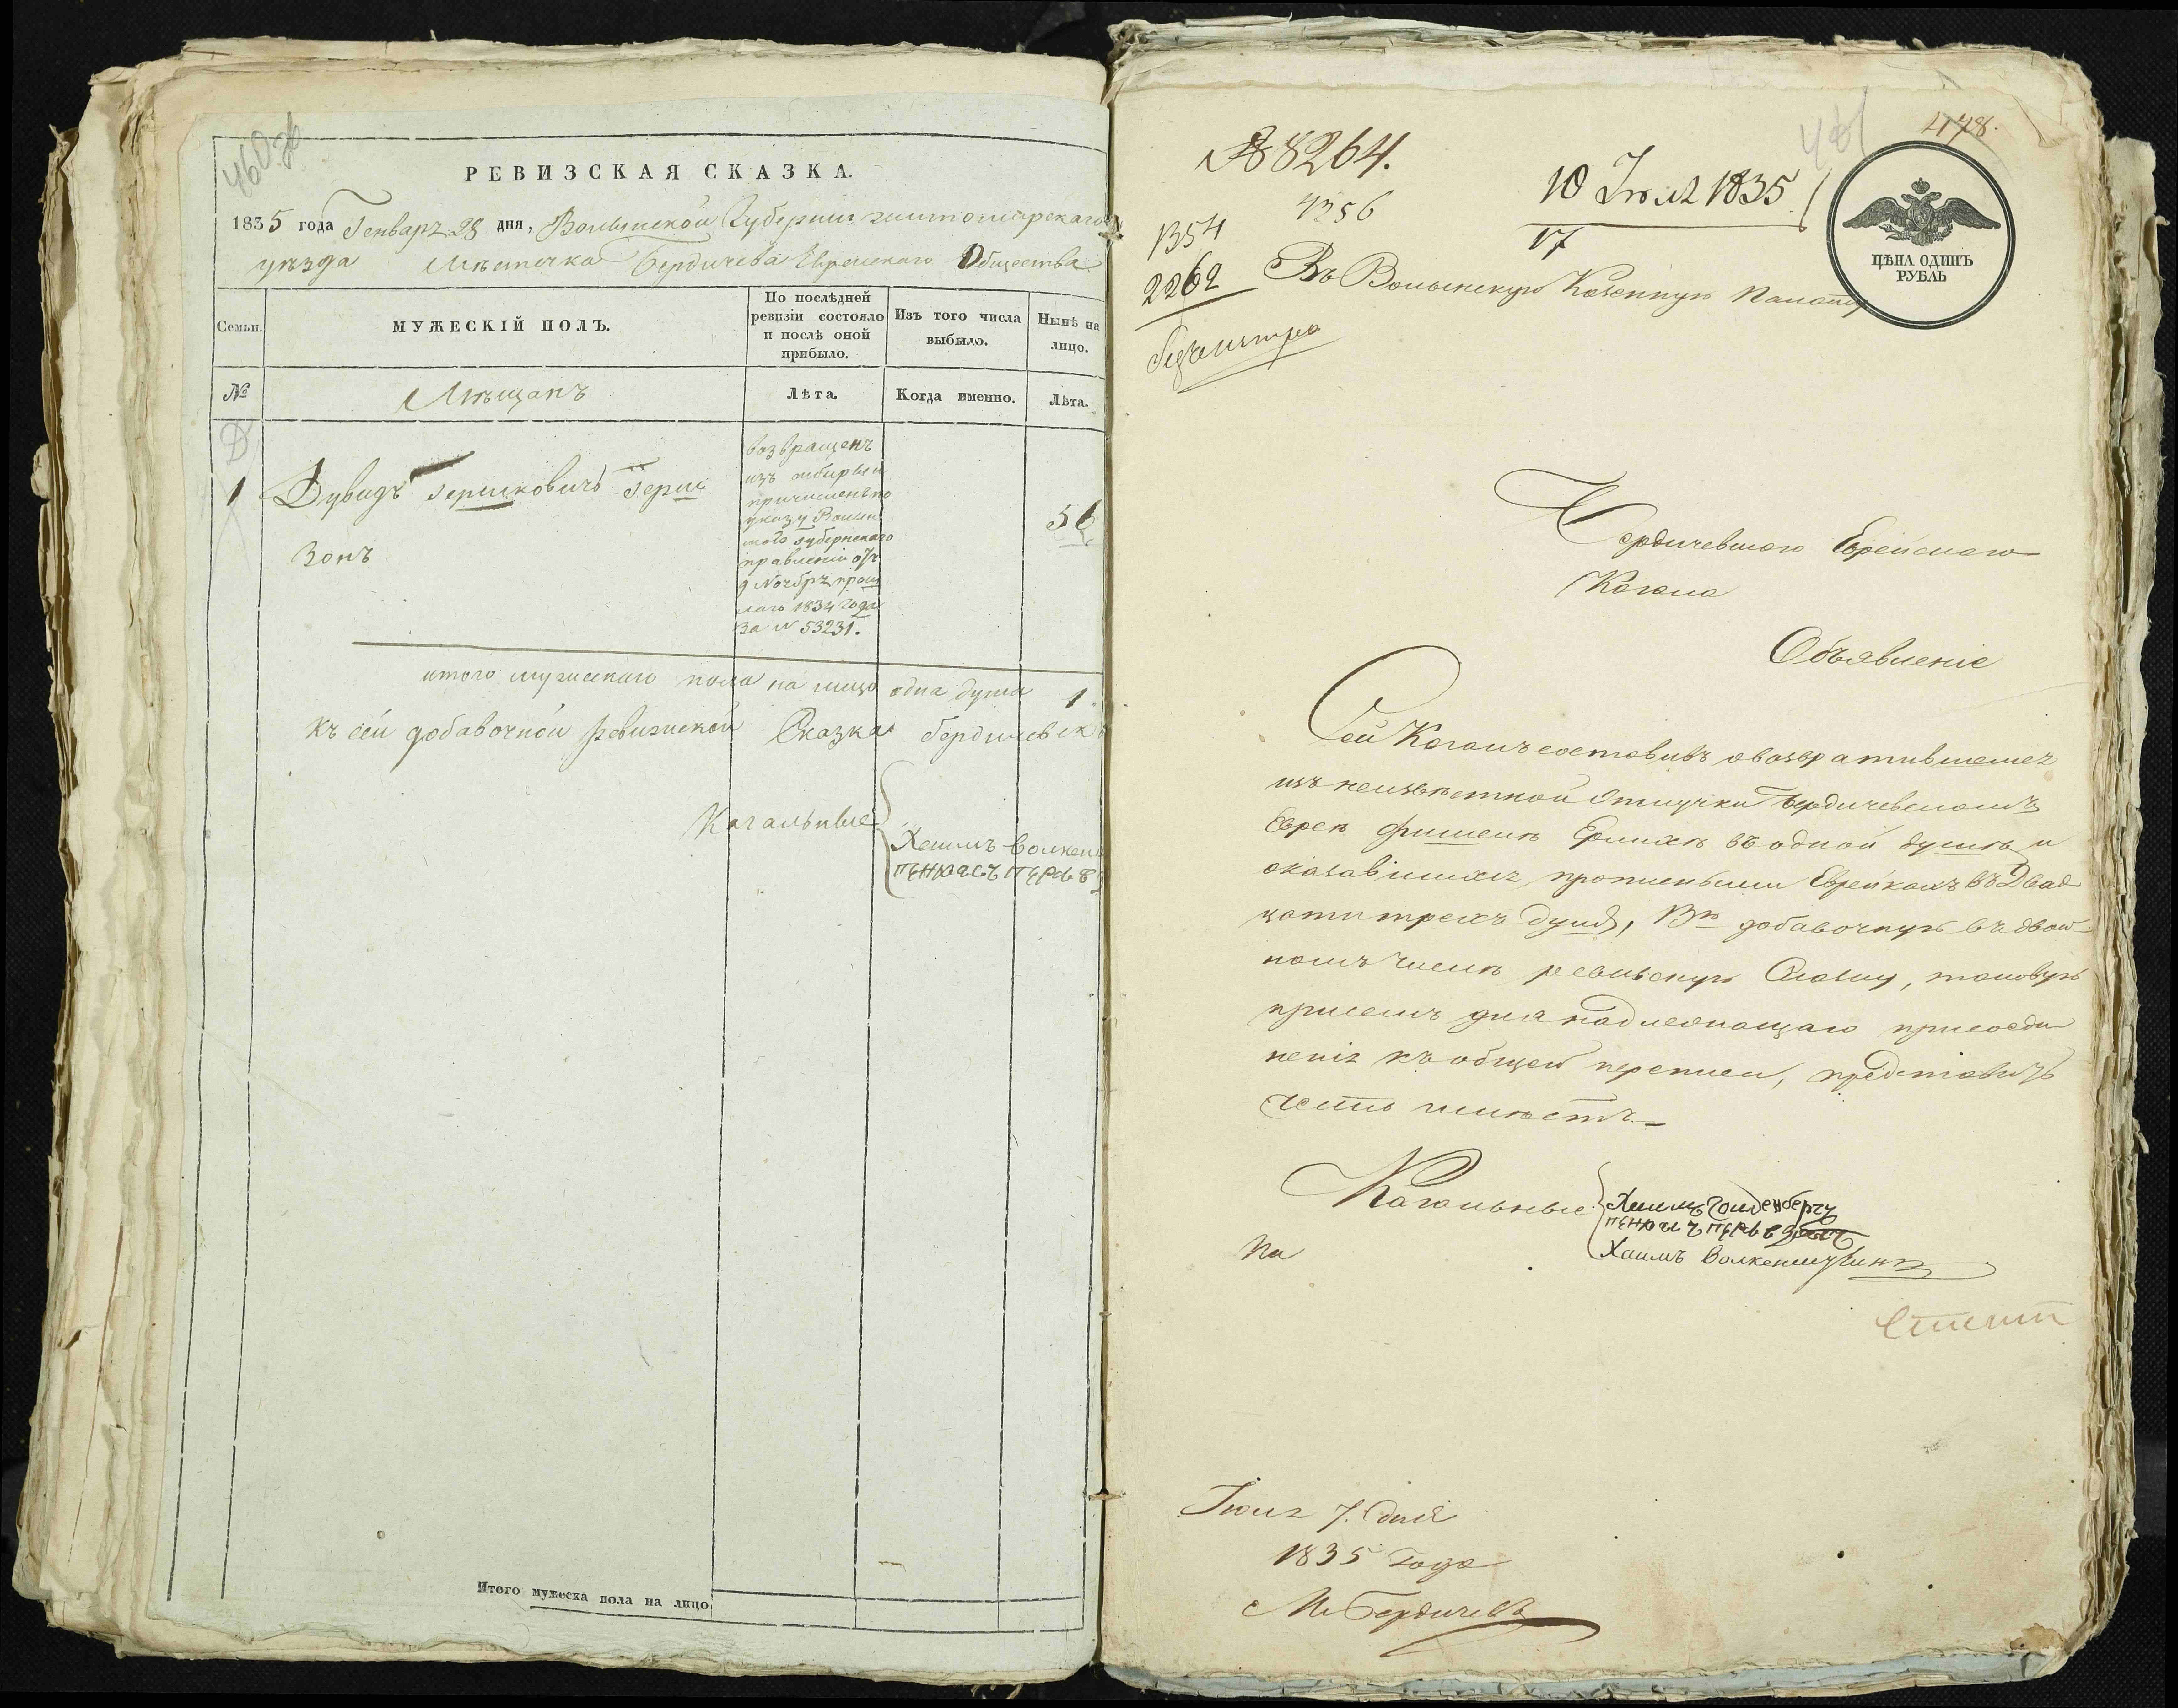 460 об
РЕВИЗСКАЯ СКАЗКА.
1835 года Генваря 28 дня, Волынской Губернии житомирскаго
уезда Мѣстечка Бердичева Еврейскаго Общества
Семьи.
МУЖЕСКІЙ ПОЛЪ.
По послѣдней ревизіи состояло и послѣ оной прибыло.
Изъ того числа выбыло.
Нынѣ на лицо.
№
Мѣщанъ
Лѣта.
Когда именно.
Лѣта.
1
Дувидъ Гершковичъ Герш
зонъ
возвращенъ
изъ сибири и
причисленъ по
указу Волын
скаго губернскаго
правленія отъ
9 Ноября прош
лаго 1834 года
за № 53231.
56
итого мужескаго пола на лицо одна душа 1
къ сей добавочной ревизской Сказке бердичевск
Кагальные
Хаимъ волкен
пенюасъ перьв
Итого мужеска пола на лицо
№ 8264.
4356
1354
2262
10 Июля 1835
17
461
478.
ЦѢНА ОДИНЪ
РУБЛЬ
Въ Волынскую Казенную Палату
Бердичевскаго Еврейскаго
Кагала
Объявленіе
Сей Кагалъ составивъ овозвратившемся
изъ неизвѣстной отлучки Бердичевскомъ
Евреѣ Фишелѣ Ерлихѣ въ одной душѣ и
оказавшихся прописными Еврейкахъ въ Двад
цати трехъ душъ, добавочную въ двой
номъ числѣ ревизскую Сказку, таковую
присемъ для надлежащаго присоеди
ненія къ общей переписи, представить
честь имѣетъ.
Кагальные
Хаимъ Голденбергъ
Хаимъ Волкенштеинъ
На
Июля 7. дня
1835 года
М. Бердичевъ